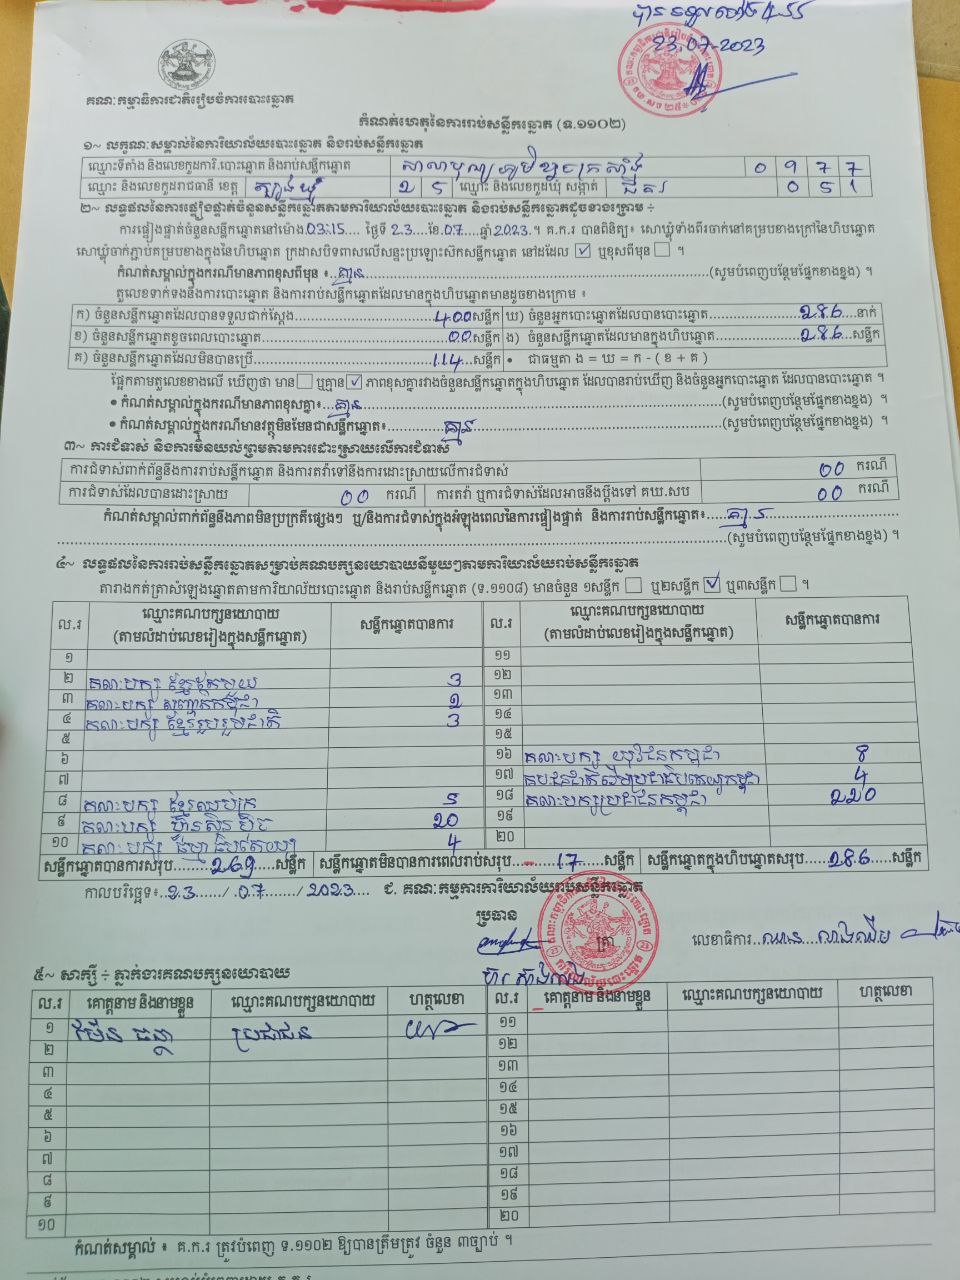 បានទទួលម៉ោង
23.07-2023
គណៈកម្មាធិការជាតិរៀបចំការបោះឆ្នោត
កំណត់ហេតុនៃការរាប់សន្លឹកឆ្នោត (ទ.១១០២)
១~ លក្ខណៈសម្គាល់នៃការិយាល័យបោះឆ្នោត និងរាប់សន្លឹកឆ្នោត
ឈ្មោះទីតាំង និងលេខកូដការិ.បោះឆ្នោត និងរាប់សន្លឹកឆ្នោត សាលាបុណ្យភូមិ 0 9 7 7
ឈ្មោះ និងលេខកូដរាជធានី ខេត្ត ត្បូងឃ្មុំ 2 5 ឈ្មោះ និងលេខកូដឃុំ សង្កាត់ 0 5 1
២~ លទ្ធផលនៃការផ្ទៀងផ្ទាត់ចំនួនសន្លឹកឆ្នោតតាមការិយាល័យបោះឆ្នោត និងរាប់សន្លឹកឆ្នោតដូចខាងក្រោម ÷
ការផ្ទៀងផ្ទាត់ចំនួនសន្លឹកឆ្នោតនៅម៉ោង 03:15.... ថ្ងៃទី 23....ខែ.07.....ឆ្នាំ 2023.។ គ.ក.រ បានពិនិត្យ៖ សោឃ្លុំទាំងពីរចាក់នៅគម្របខាងក្រៅនៃហិបឆ្នោត
សោឃ្លុំចាក់ភ្ជាប់គម្របខាងក្នុងនៃហិបឆ្នោត ក្រដាសបិទពាសលើសន្ទះប្រឡោះស៊កសន្លឹកឆ្នោត នៅដដែល ☑ ឬខុសពីមុន ☐ ។
កំណត់សម្គាល់ក្នុងករណីមានភាពខុសពីមុន ៖ គ្មាន (សូមបំពេញបន្ថែមផ្នែកខាងខ្នង) ។
តួលេខទាក់ទងនឹងការបោះឆ្នោត និងការរាប់សន្លឹកឆ្នោតដែលមានក្នុងហិបឆ្នោតមានដូចខាងក្រោម ៖
ក) ចំនួនសន្លឹកឆ្នោតដែលបានទទួលជាក់ស្តែង 400 សន្លឹក ឃ) ចំនួនអ្នកបោះឆ្នោតដែលបានបោះឆ្នោត 286 នាក់
ខ) ចំនួនសន្លឹកឆ្នោតខូចពេលបោះឆ្នោត 00 សន្លឹក ង) ចំនួនសន្លឹកឆ្នោតដែលមានក្នុងហិបឆ្នោត 286 សន្លឹក
គ) ចំនួនសន្លឹកឆ្នោតដែលមិនបានប្រើ 114 សន្លឹក • ជាធម្មតា ង = ឃ = ក - ( ខ + គ )
ផ្អែកតាមតួលេខខាងលើ ឃើញថា មាន ☐ ឬគ្មាន ☑ ភាពខុសគ្នារវាងចំនួនសន្លឹកឆ្នោតក្នុងហិបឆ្នោត ដែលបានរាប់ឃើញ និងចំនួនអ្នកបោះឆ្នោត ដែលបានបោះឆ្នោត ។
• កំណត់សម្គាល់ក្នុងករណីមានភាពខុសគ្នា៖ គ្មាន (សូមបំពេញបន្ថែមផ្នែកខាងខ្នង) ។
• កំណត់សម្គាល់ក្នុងករណីមានវត្ថុមិនមែនជាសន្លឹកឆ្នោត៖ គ្មាន (សូមបំពេញបន្ថែមផ្នែកខាងខ្នង) ។
៣~ ការជំទាស់ និងការមិនយល់ព្រមតាមការដោះស្រាយលើការជំទាស់
ការជំទាស់ពាក់ព័ន្ធនឹងការរាប់សន្លឹកឆ្នោត និងការតវ៉ាទៅនឹងការដោះស្រាយលើការជំទាស់ 00 ករណី
ការជំទាស់ដែលបានដោះស្រាយ 00 ករណី ការតវ៉ា ឬការជំទាស់ដែលអាចនឹងប្តឹងទៅ គឃ.សប 00 ករណី
កំណត់សម្គាល់ពាក់ព័ន្ធនឹងភាពមិនប្រក្រតីផ្សេងៗ ឬ/និងការជំទាស់ក្នុងអំឡុងពេលនៃការផ្ទៀងផ្ទាត់ និងការរាប់សន្លឹកឆ្នោត៖ គ្មាន
(សូមបំពេញបន្ថែមផ្នែកខាងខ្នង) ។
៤~ លទ្ធផលនៃការរាប់សន្លឹកឆ្នោតសម្រាប់គណបក្សនយោបាយនីមួយៗតាមការិយាល័យរាប់សន្លឹកឆ្នោត
តារាងកត់ត្រាសំឡេងឆ្នោតតាមការិយាល័យបោះឆ្នោត និងរាប់សន្លឹកឆ្នោត (ទ.១១០៨) មានចំនួន ១សន្លឹក ☐ ឬ២សន្លឹក ☑ ឬ៣សន្លឹក ☐ ។
ល.រ ឈ្មោះគណបក្សនយោបាយ (តាមលំដាប់លេខរៀងក្នុងសន្លឹកឆ្នោត) សន្លឹកឆ្នោតបានការ ល.រ ឈ្មោះគណបក្សនយោបាយ (តាមលំដាប់លេខរៀងក្នុងសន្លឹកឆ្នោត) សន្លឹកឆ្នោតបានការ
១ ១១
២ គណៈបក្ស ខ្មែរតែមួយ 3 ១២
៣ គណៈបក្ស សញ្ជាតិកម្ពុជា 1 ១៣
៤ គណៈបក្ស ខ្មែររួបរួមជាតិ 3 ១៤
៥ ១៥
៦ ១៦ គណៈបក្ស យុវជនកម្ពុជា 8
៧ ១៧ 4
៨ គណៈបក្ស ខ្មែរឈប់ក្រ 5 ១៨ គណៈបក្សប្រជាជនកម្ពុជា 220
៩ គណៈបក្ស ហ៊្វុនស៊ិនប៉ិច 20 ១៩
១០ គណៈបក្ស ធម្មាធិបតេយ្យ 4 ២០
សន្លឹកឆ្នោតបានការសរុប 269 សន្លឹក សន្លឹកឆ្នោតមិនបានការពេលរាប់សរុប 17 សន្លឹក សន្លឹកឆ្នោតក្នុងហិបឆ្នោតសរុប 286 សន្លឹក
កាលបរិច្ឆេទ៖ 23 / 07 / 2023 ជ. គណៈកម្មការការិយាល័យរាប់សន្លឹកឆ្នោត
ប្រធាន
ត្រា លេខាធិការ
៥~ សាក្សី ÷ ភ្នាក់ងារគណបក្សនយោបាយ
ល.រ គោត្តនាម និងនាមខ្លួន ឈ្មោះគណបក្សនយោបាយ ហត្ថលេខា ល.រ គោត្តនាម និងនាមខ្លួន ឈ្មោះគណបក្សនយោបាយ ហត្ថលេខា
១ ម៉ើន ធន្នា ប្រជាជន ១១
២ ១២
៣ ១៣
៤ ១៤
៥ ១៥
៦ ១៦
៧ ១៧
៨ ១៨
៩ ១៩
១០ ២០
កំណត់សម្គាល់ ៖ គ.ក.រ ត្រូវបំពេញ ទ.១១០២ ឱ្យបានត្រឹមត្រូវ ចំនួន ៣ច្បាប់ ។